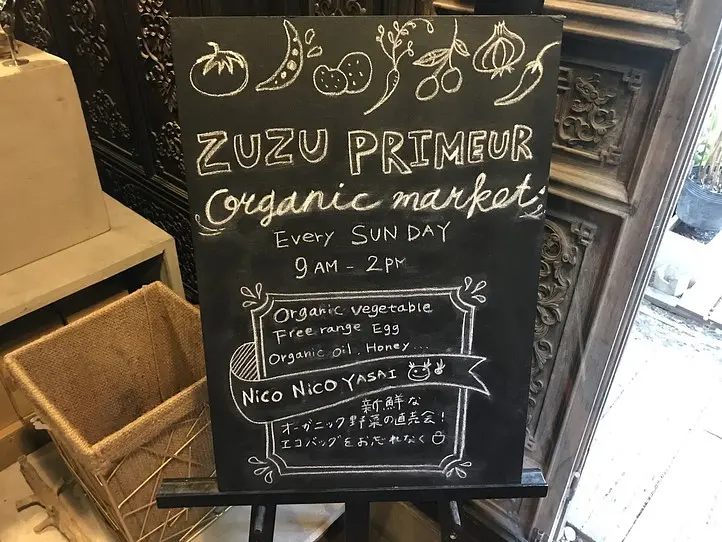 ZUZU PRIMEUR
Organic market
Every SUNDAY
9AM - 2PM
Organic vegetable
Free range Egg
Organic oil. Honey...
NICO NICO YASAI
新鮮な
オーガニック野菜の直売会!
エコバッグをお忘れなく